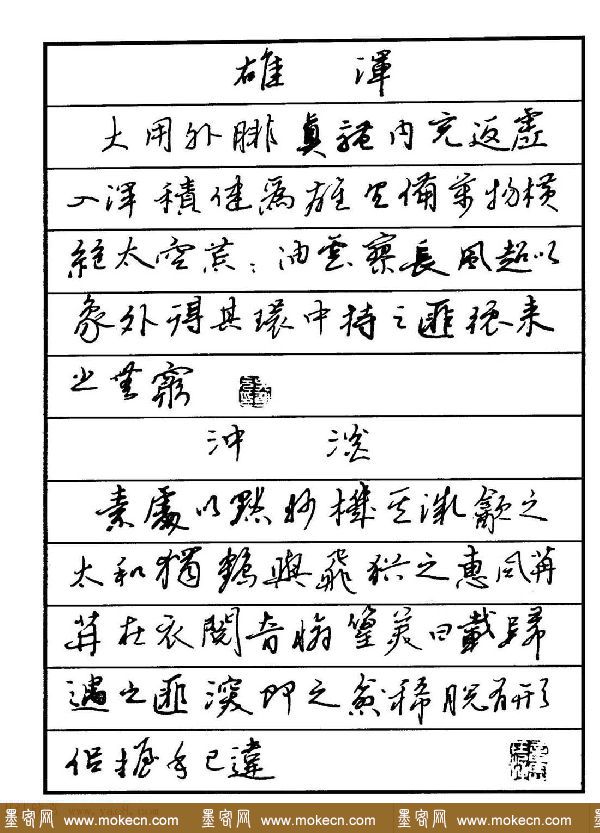 雄 渾
大用外腓真體內充返虛
入渾積健為雄具備萬物橫
絕太空荒：油雲寥長風超以
象外得其環中持之匪強來
之無窮
沖 淡
素處以默妙機其微飲之
太和獨鶴與飛猶之惠風苒
苒在衣閱音脩篁美曰載歸
遇之匪深即之愈稀脫有形
侣握手已違
墨客网 www.mokecn.com 墨客网 www.mokecn.com 墨客网 www.mokecn.com